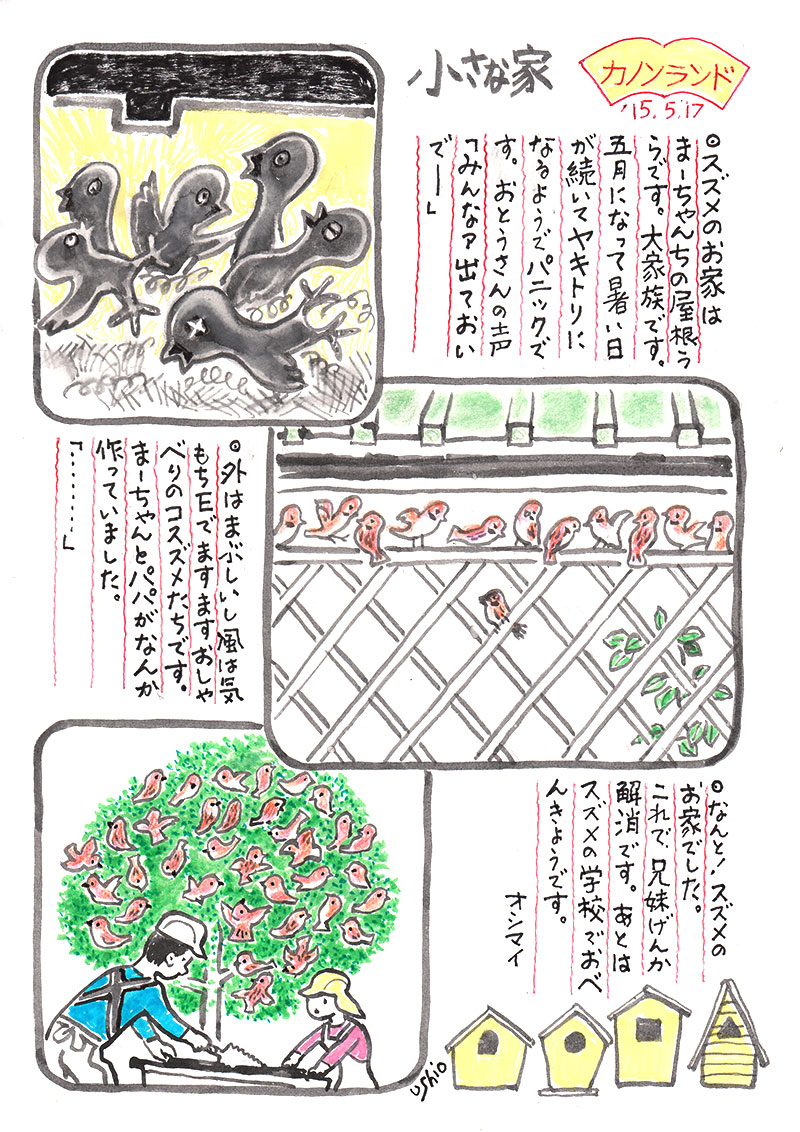 小さな家
カノンランド
'15.5.17
◎スズメのお家は
まーちゃんちの屋根う
らです。大家族です。
五月になって暑い日
が続いてヤキトリに
なるようでパニックで
す。おとうさんの声
「みんなァ出ておい
でー」
◎外はまぶしいし風は気
もちEでますますおしゃ
べりのコスズメたちです。
まーちゃんとパパがなんか
作っていました。
「………」
◎なんと!スズメの
お家でした。
これで兄妹げんか
解消です。あとは
スズメの学校でおべ
んきょうです。
オシマイ
ushio